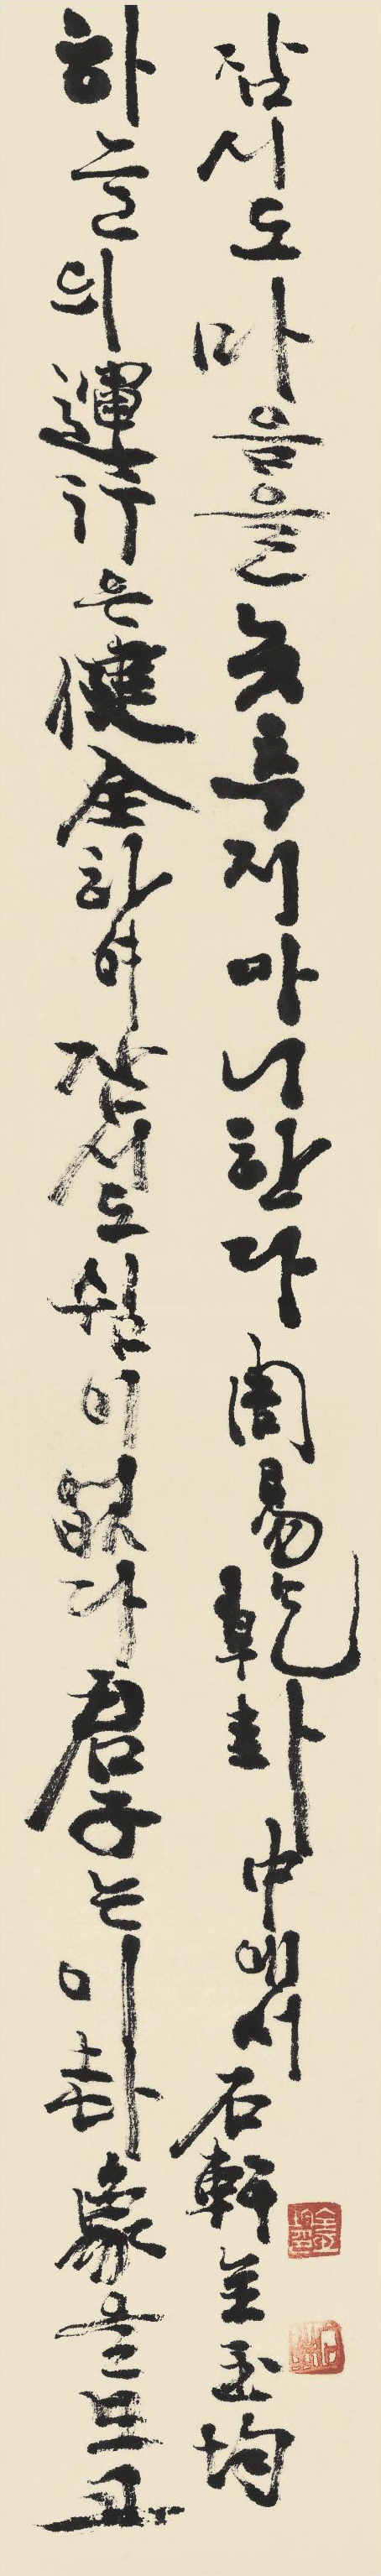 하늘의 運行은 健全하여 잠시도 쉼이 없다 君子는 이 卦象을 보고
잠시도 마음을 늦추지 아니한다 周易乾卦 中에서 石軒 金玉均